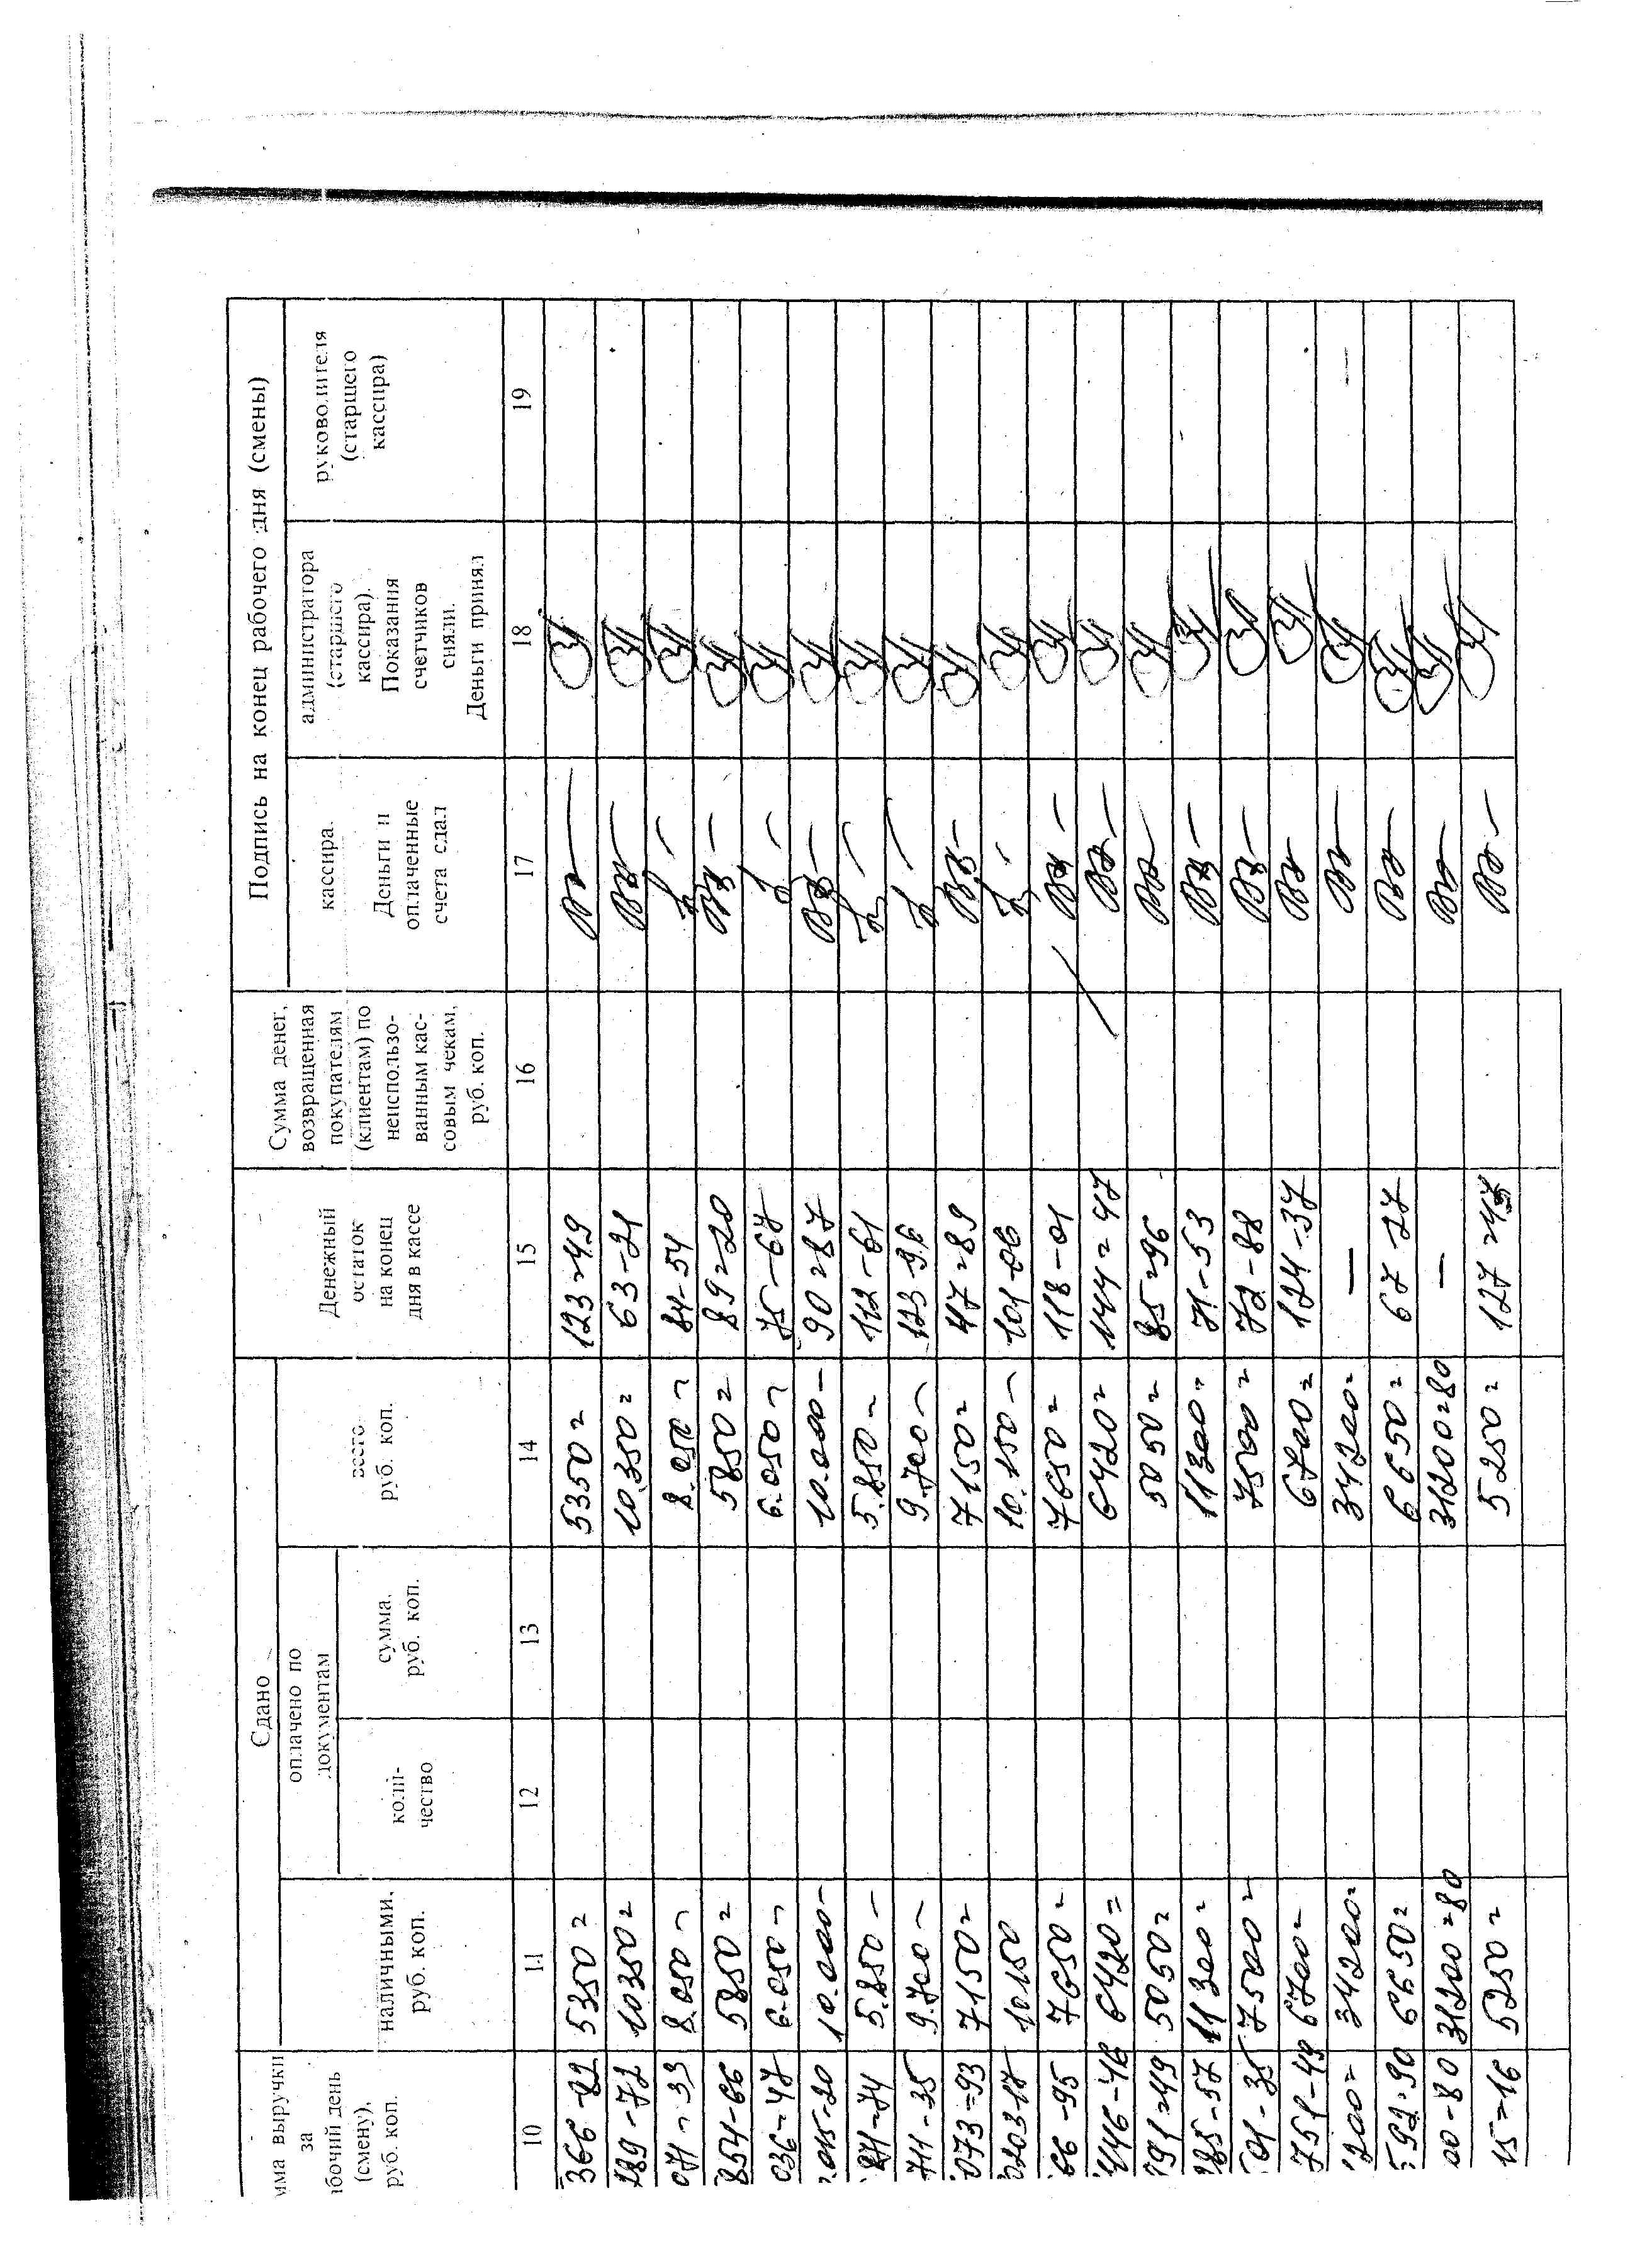 Сдано
Подпись на конец рабочего дня (смены)
мма выручки
за
бочий день
(смену),
руб. коп.
наличными,
руб. коп.
оплачено по
документам
коли-
чество
сумма,
руб. коп.
всего
руб. коп.
Денежный
остаток
на конец
дня в кассе
Сумма денег,
возвращенная
покупателям
(клиентам) по
неиспользо-
ванным кас-
совым чекам,
руб. коп.
кассира.
Деньги и
оплаченные
счета сдал
администратора
(старшего
кассира).
Показания
счетчиков
сняли.
Деньги принял
руководителя
(старшего
кассира)
10 11 12 13 14 15 16 17 18 19
366-82 5350= 5350= 123=49
189-72 10350= 10.350= 63-21
071-33 8.050- 8.050- 84-54
854-66 5850= 5850= 89=20
036-47 6.050- 6.050- 75-67
015-20 10.000- 10.000- 90=87
871-74 5.850- 5.850- 112-61
711-35 9.700- 9.700- 123-96
073=93 7150= 7150= 47=89
0203-17 10150 10.150- 101-06
66-95 7650= 7650= 118-01
446-46 6420= 6420= 144=47
91=49 5050= 5050= 85=96
285-57 11300= 11300= 71-53
01-35 7500= 7500= 72-88
751-49 6700= 6700= 124-37
200= 34200= 34200= —
592-90 6650= 6650= 67-27
00-80 31200=80 31200=80 —
15=16 5250= 5250=